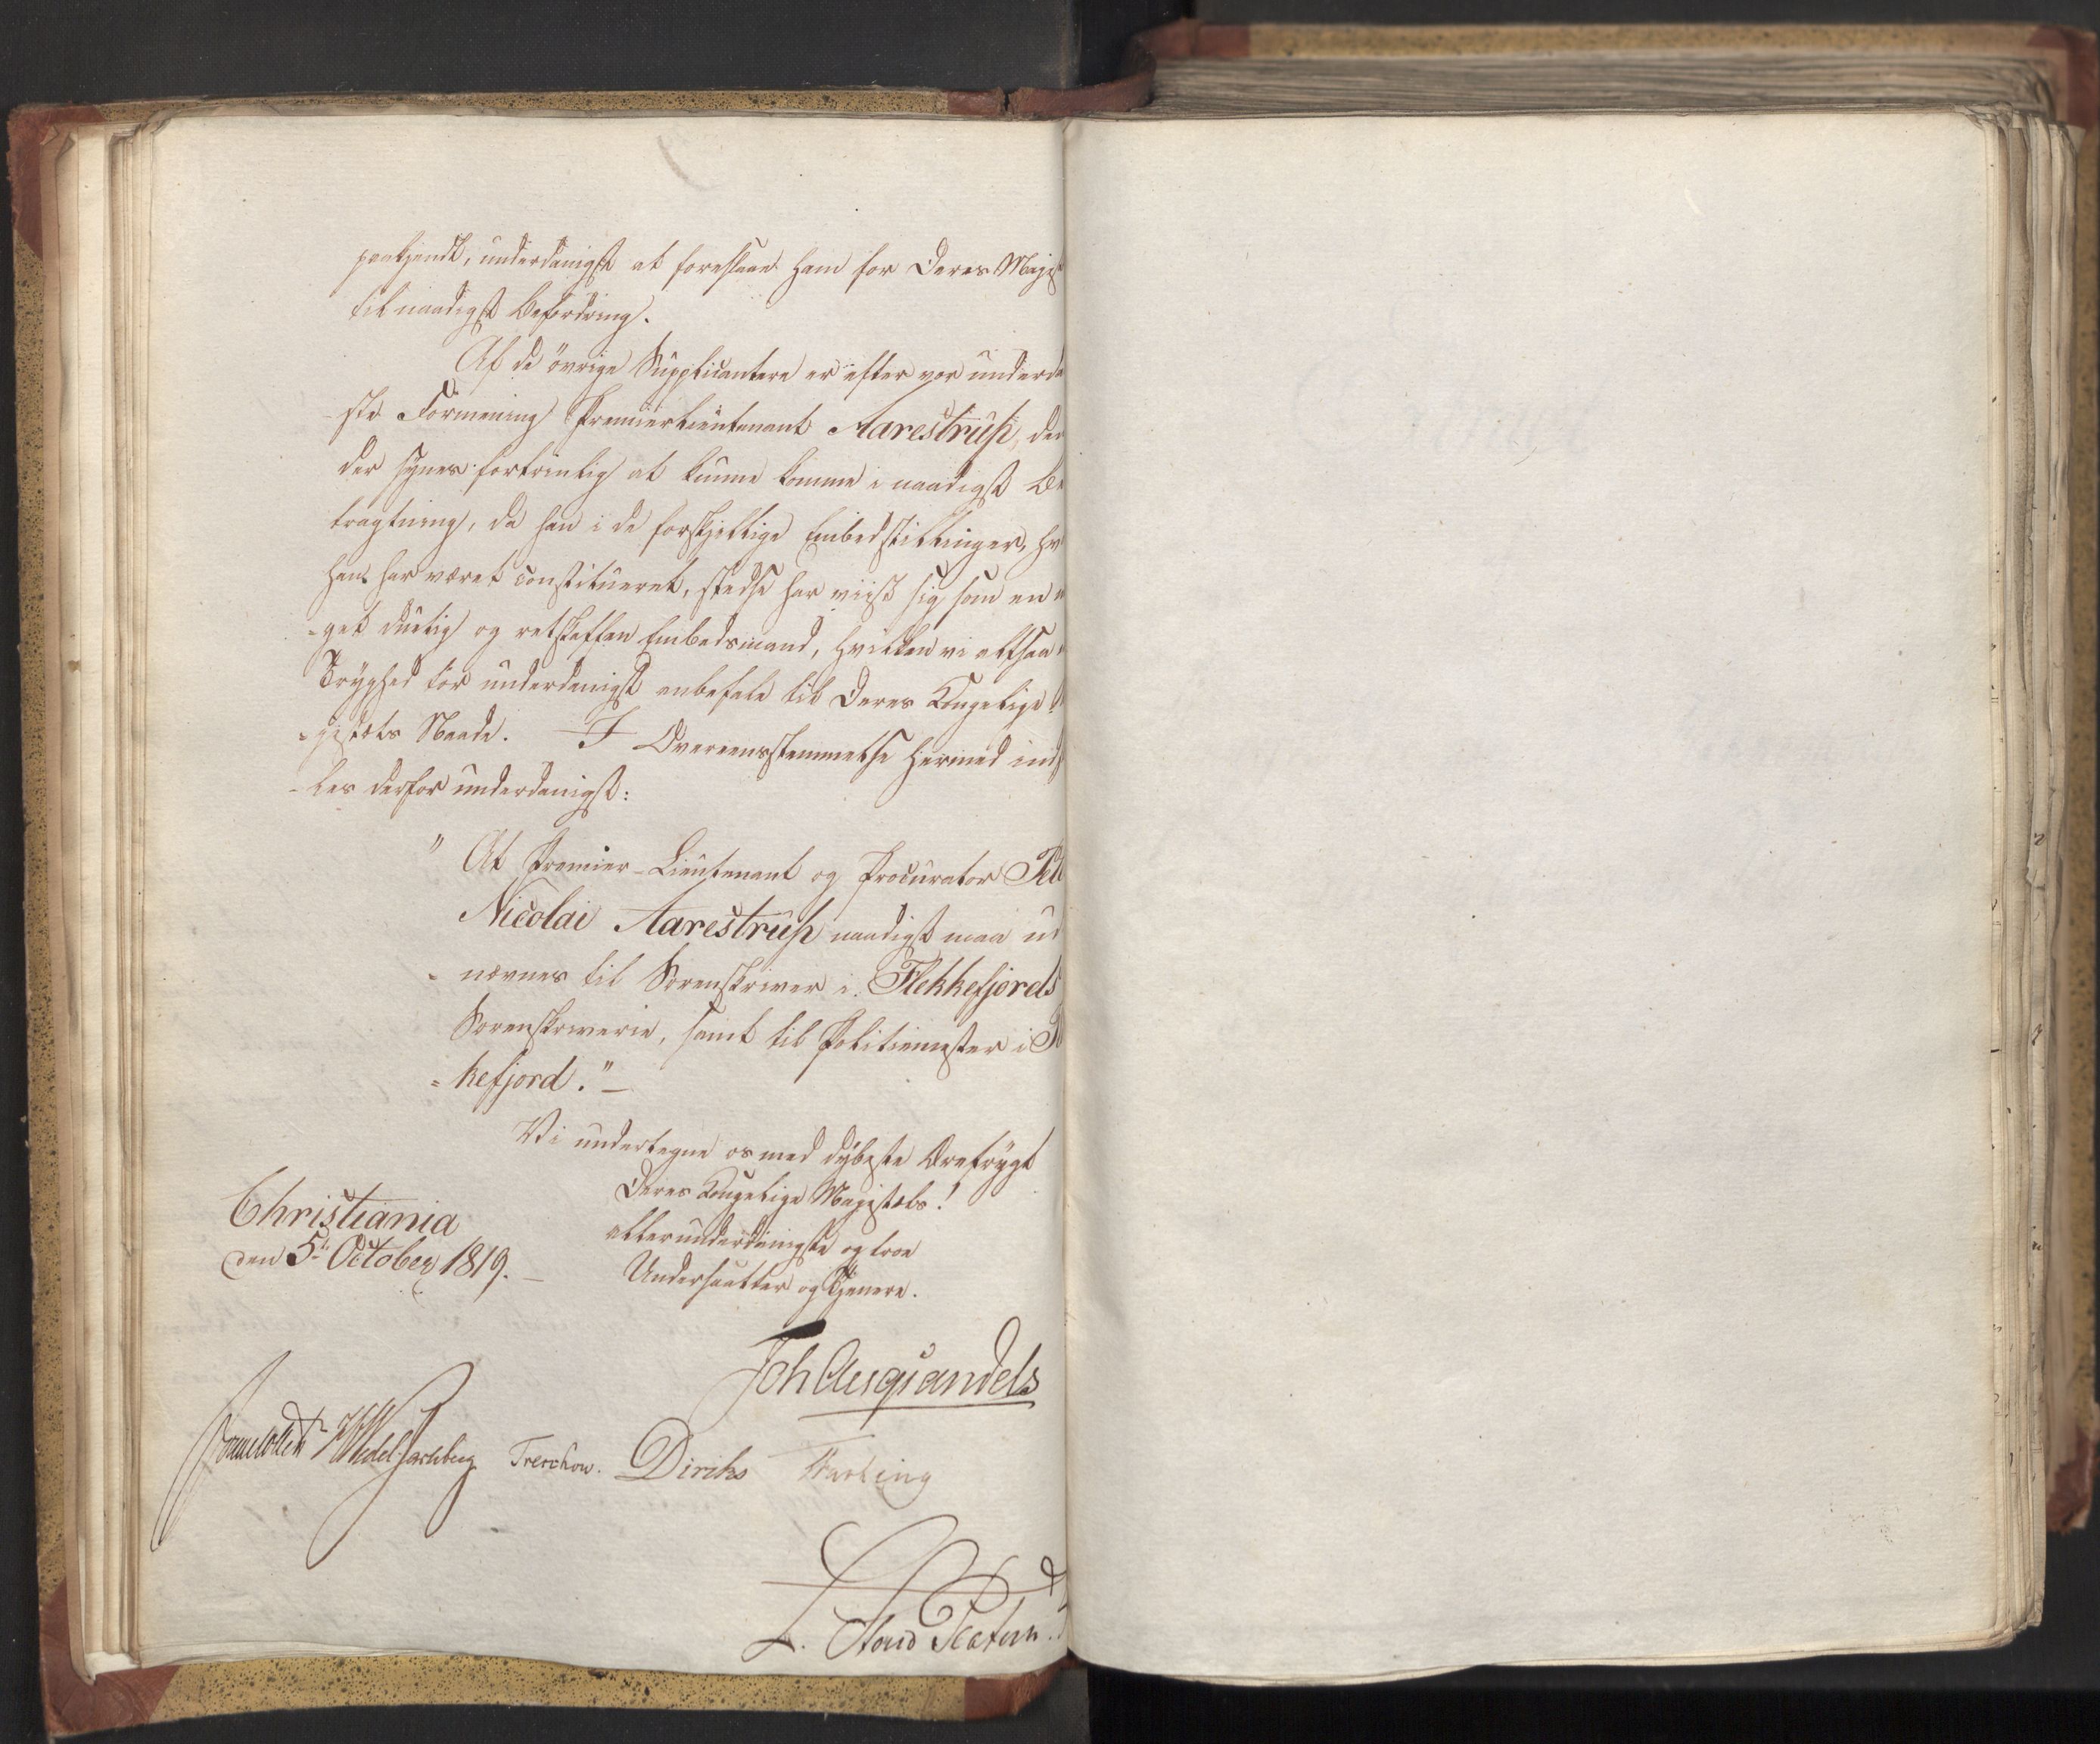 paakjendt, underdanigst at foreslaae ham for Deres Majest
til naadigst Befordring.
Af de övrige Supplicantere er efter vor underda
ste Formening Premierlieutenant Aarestrüp, den
der synes fortrinlig at kunne komme i naadigst Be
tragtning, da han i de forskjellige Embedsstillinger, hv
han har været constitueret, stedse har viist sig som en m
=get duelig og retskaffen Embedsmand, hvilken vi altsaa m
Tryghed tör underdanigst anbefale til Deres Kongelige
=jestæts Naade. I Overeensstemmelse hermed inds
-les derfor underdanigst:
" At Premier-Lieutenant og Procurator Pet
Nicolai Aarestrüp naadigst maa ud
- nævnes til Sorenskriver i Flekkefjords
Sorenskriverie, samt til Politiemester i Fl
=kefjord."-
Vi undertegne os med dybeste Ærefrygt
Deres Kongelige Majestæts!
allerunderdanigste og troe
Undersaatter og Tjenere.
Christiania
den 5te October 1819.-
Joh Aug Sandels
Sommerhielm HWedelJarlsberg Treschow. Diriks Fasting
L. Stoud Platou